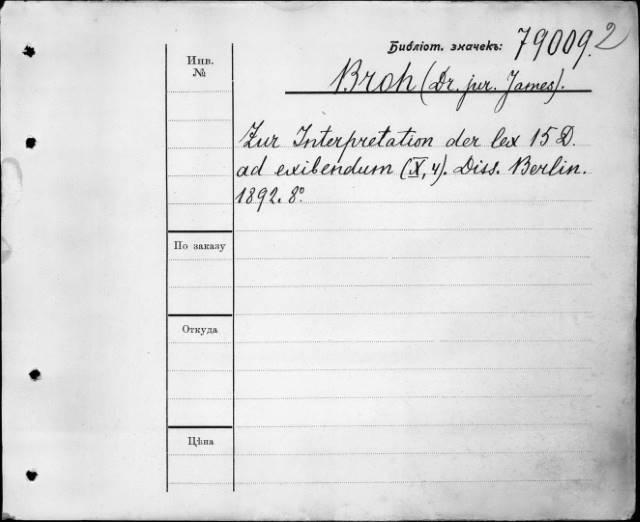 Библіот. значекъ: 79009.2
Инв. №
Broh (Dr. jur. James).
Zur Interpretation der lex 15 D.
ad exibendum (X, 4). Diss. Berlin.
1892. 8°
По заказу
Откуда
Цѣна